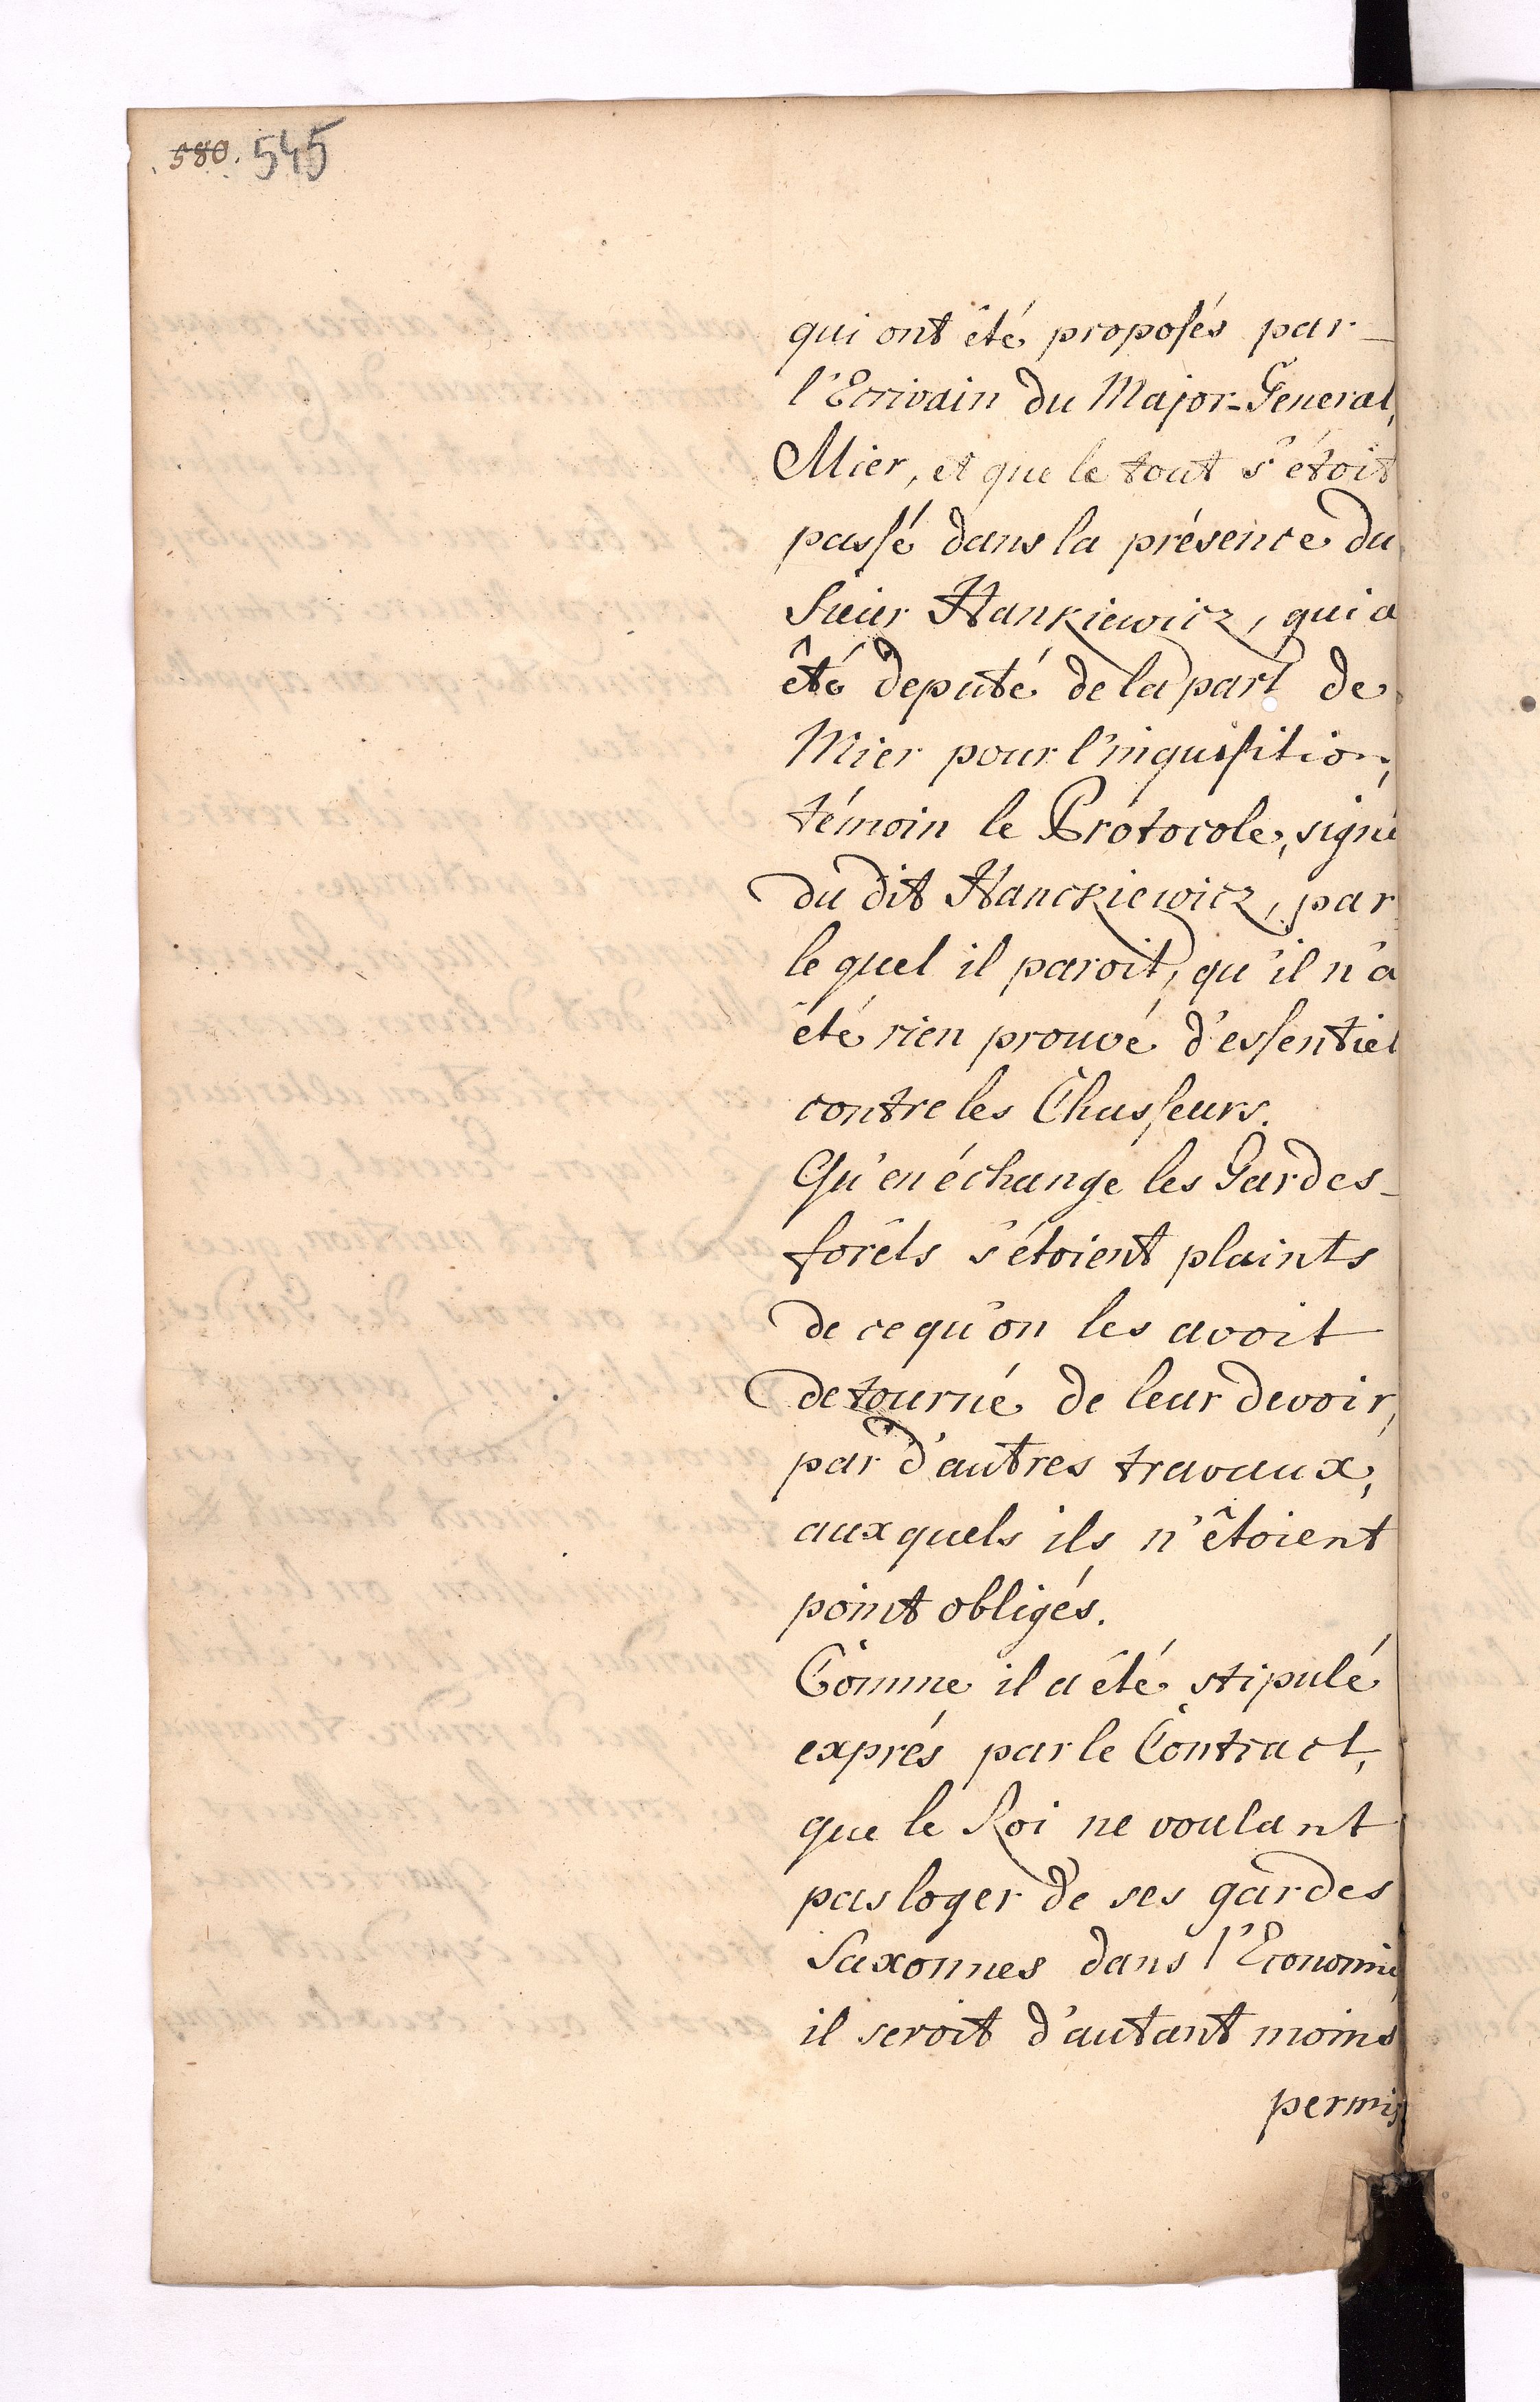 580. 545
qui ont êté proposés par
l'Ecrivain du Major-General
Mier, et que le tout s'étoit
passé dans la présence du
Sieur Hankiewicz, qui a
êté deputé de la part de
Mier pour l'inquisition,
témoin le Protocole, signé
du dit Hanckiewicz, par
le quel il paroit, qu'il n'a
été rien prouvé d'essentiel
contre les Chasseurs.
Qu'en échange les Gardes-
forêts s'étoient plaints
de ce qu'on les avoit
detourné de leur devoir,
par d'autres travaux,
aux quels ils n'êtoient
point obligés.
Comme il a êté stipulé
exprés par le Contract,
que le Roi ne voulant
pas loger de ses gardes
Saxonnes dans l'Economie
il seroit d'autant moins
permis